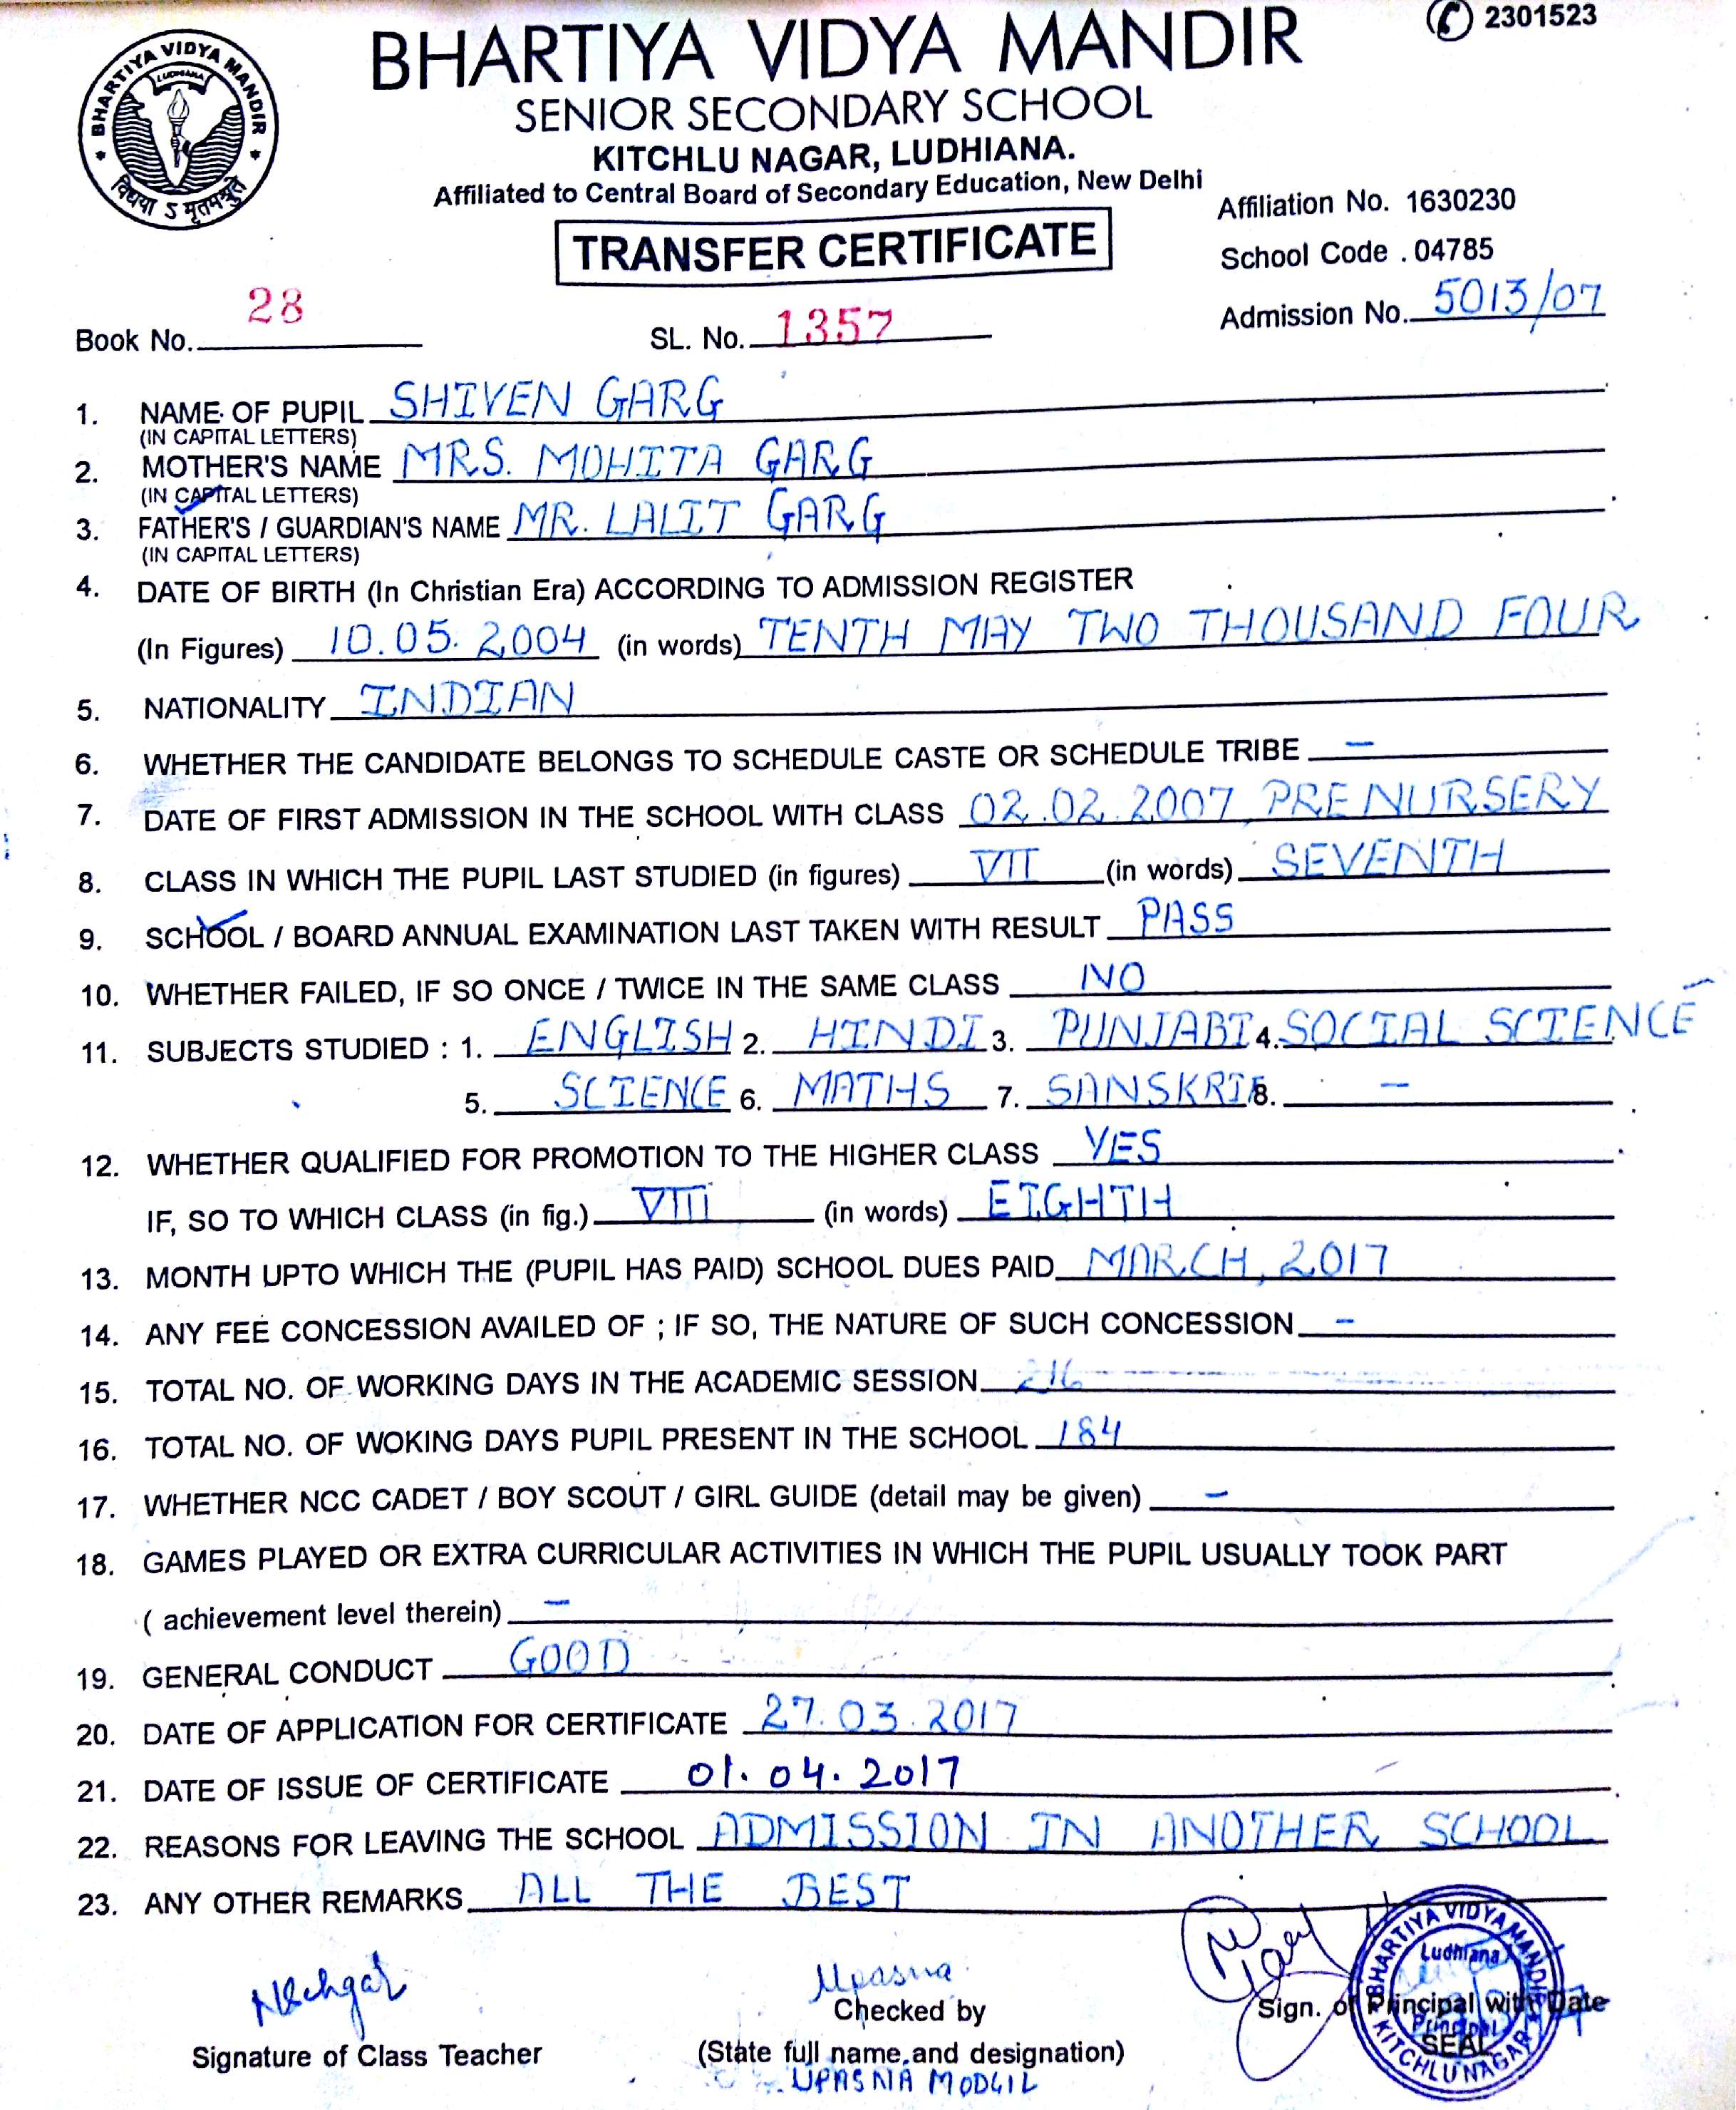 BHARTIYA VIDYA MANDIR
LUDHIANA
विद्यया ऽ मृतमश्नुते
2301523
BHARTIYA VIDYA MANDIR
SENIOR SECONDARY SCHOOL
KITCHLU NAGAR, LUDHIANA.
Affiliated to Central Board of Secondary Education, New Delhi
Affiliation No. 1630230
TRANSFER CERTIFICATE
School Code . 04785
Book No. 28 SL. No. 1357 Admission No. 5013/07
1. NAME OF PUPIL SHIVEN GARG
(IN CAPITAL LETTERS)
2. MOTHER'S NAME MRS. MOHITA GARG
(IN CAPITAL LETTERS)
3. FATHER'S / GUARDIAN'S NAME MR. LALIT GARG
(IN CAPITAL LETTERS)
4. DATE OF BIRTH (In Christian Era) ACCORDING TO ADMISSION REGISTER
(In Figures) 10.05.2004 (in words) TENTH MAY TWO THOUSAND FOUR
5. NATIONALITY INDIAN
6. WHETHER THE CANDIDATE BELONGS TO SCHEDULE CASTE OR SCHEDULE TRIBE –
7. DATE OF FIRST ADMISSION IN THE SCHOOL WITH CLASS 02.02.2007, PRE NURSERY
8. CLASS IN WHICH THE PUPIL LAST STUDIED (in figures) VII (in words) SEVENTH
9. SCHOOL / BOARD ANNUAL EXAMINATION LAST TAKEN WITH RESULT PASS
10. WHETHER FAILED, IF SO ONCE / TWICE IN THE SAME CLASS NO
11. SUBJECTS STUDIED : 1. ENGLISH 2. HINDI 3. PUNJABI 4. SOCIAL SCIENCE
5. SCIENCE 6. MATHS 7. SANSKRIT 8. –
12. WHETHER QUALIFIED FOR PROMOTION TO THE HIGHER CLASS YES
IF, SO TO WHICH CLASS (in fig.) VIII (in words) EIGHTH
13. MONTH UPTO WHICH THE (PUPIL HAS PAID) SCHOOL DUES PAID MARCH, 2017
14. ANY FEE CONCESSION AVAILED OF ; IF SO, THE NATURE OF SUCH CONCESSION –
15. TOTAL NO. OF WORKING DAYS IN THE ACADEMIC SESSION 216
16. TOTAL NO. OF WOKING DAYS PUPIL PRESENT IN THE SCHOOL 184
17. WHETHER NCC CADET / BOY SCOUT / GIRL GUIDE (detail may be given) –
18. GAMES PLAYED OR EXTRA CURRICULAR ACTIVITIES IN WHICH THE PUPIL USUALLY TOOK PART
( achievement level therein) –
19. GENERAL CONDUCT GOOD
20. DATE OF APPLICATION FOR CERTIFICATE 27.03.2017
21. DATE OF ISSUE OF CERTIFICATE 01.04.2017
22. REASONS FOR LEAVING THE SCHOOL ADMISSION IN ANOTHER SCHOOL
23. ANY OTHER REMARKS ALL THE BEST
BHARTIYA VIDYA MANDIR
Ludhiana
Principal
KITCHLU NAGAR
Upasna
Checked by
Sign. of Principal with Date
SEAL
Signature of Class Teacher
(State full name and designation)
UPASNA MODGIL